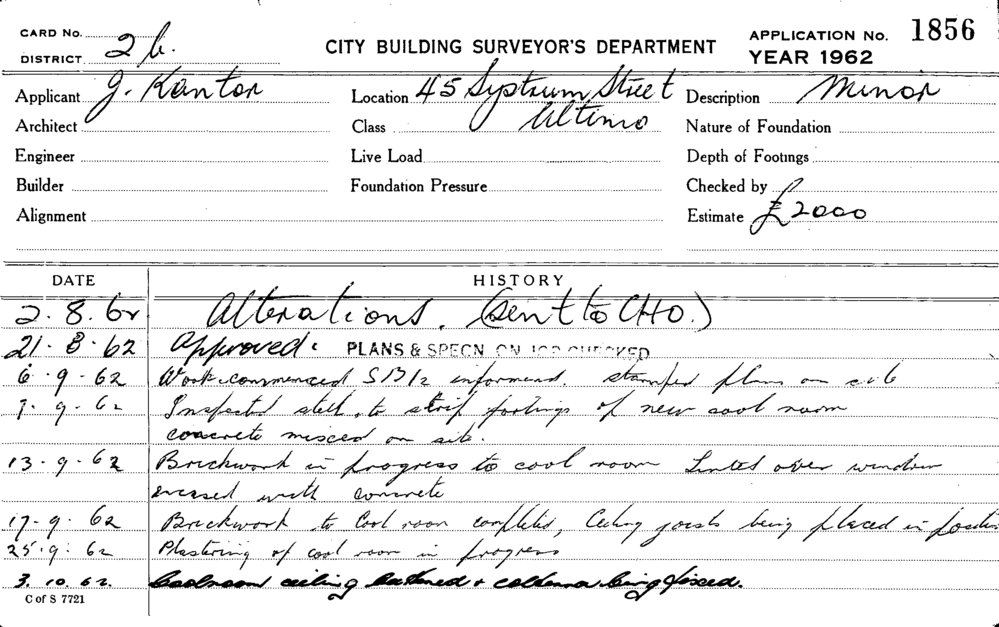 CARD No.
DISTRICT 2b.
CITY BUILDING SURVEYOR'S DEPARTMENT
APPLICATION No. 1856
YEAR 1962
Applicant J. Kantor
Location 45 Systrum Street
Description Minor
Architect
Class Ultimo
Nature of Foundation
Engineer
Live Load
Depth of Footings
Builder
Foundation Pressure
Checked by
Alignment
Estimate £2000
DATE HISTORY
2.8.62 Alterations. (Sent to CHO.)
21.8.62 Approved. PLANS & SPECN ON JOB CHECKED
6.9.62 Work commenced informed. stamped plans on site
7.9.62 Inspected steel to strip footings of new cool room
concrete mixed on site.
13.9.62 Brickwork in progress to cool room Lintel over window
encased with concrete
17.9.62 Brickwork to Cool room completed, Ceiling joists being placed in position
25.9.62 Plastering of cool room in progress
3.10.62. Coolroom ceiling battened + being fixed.
C of S 7721